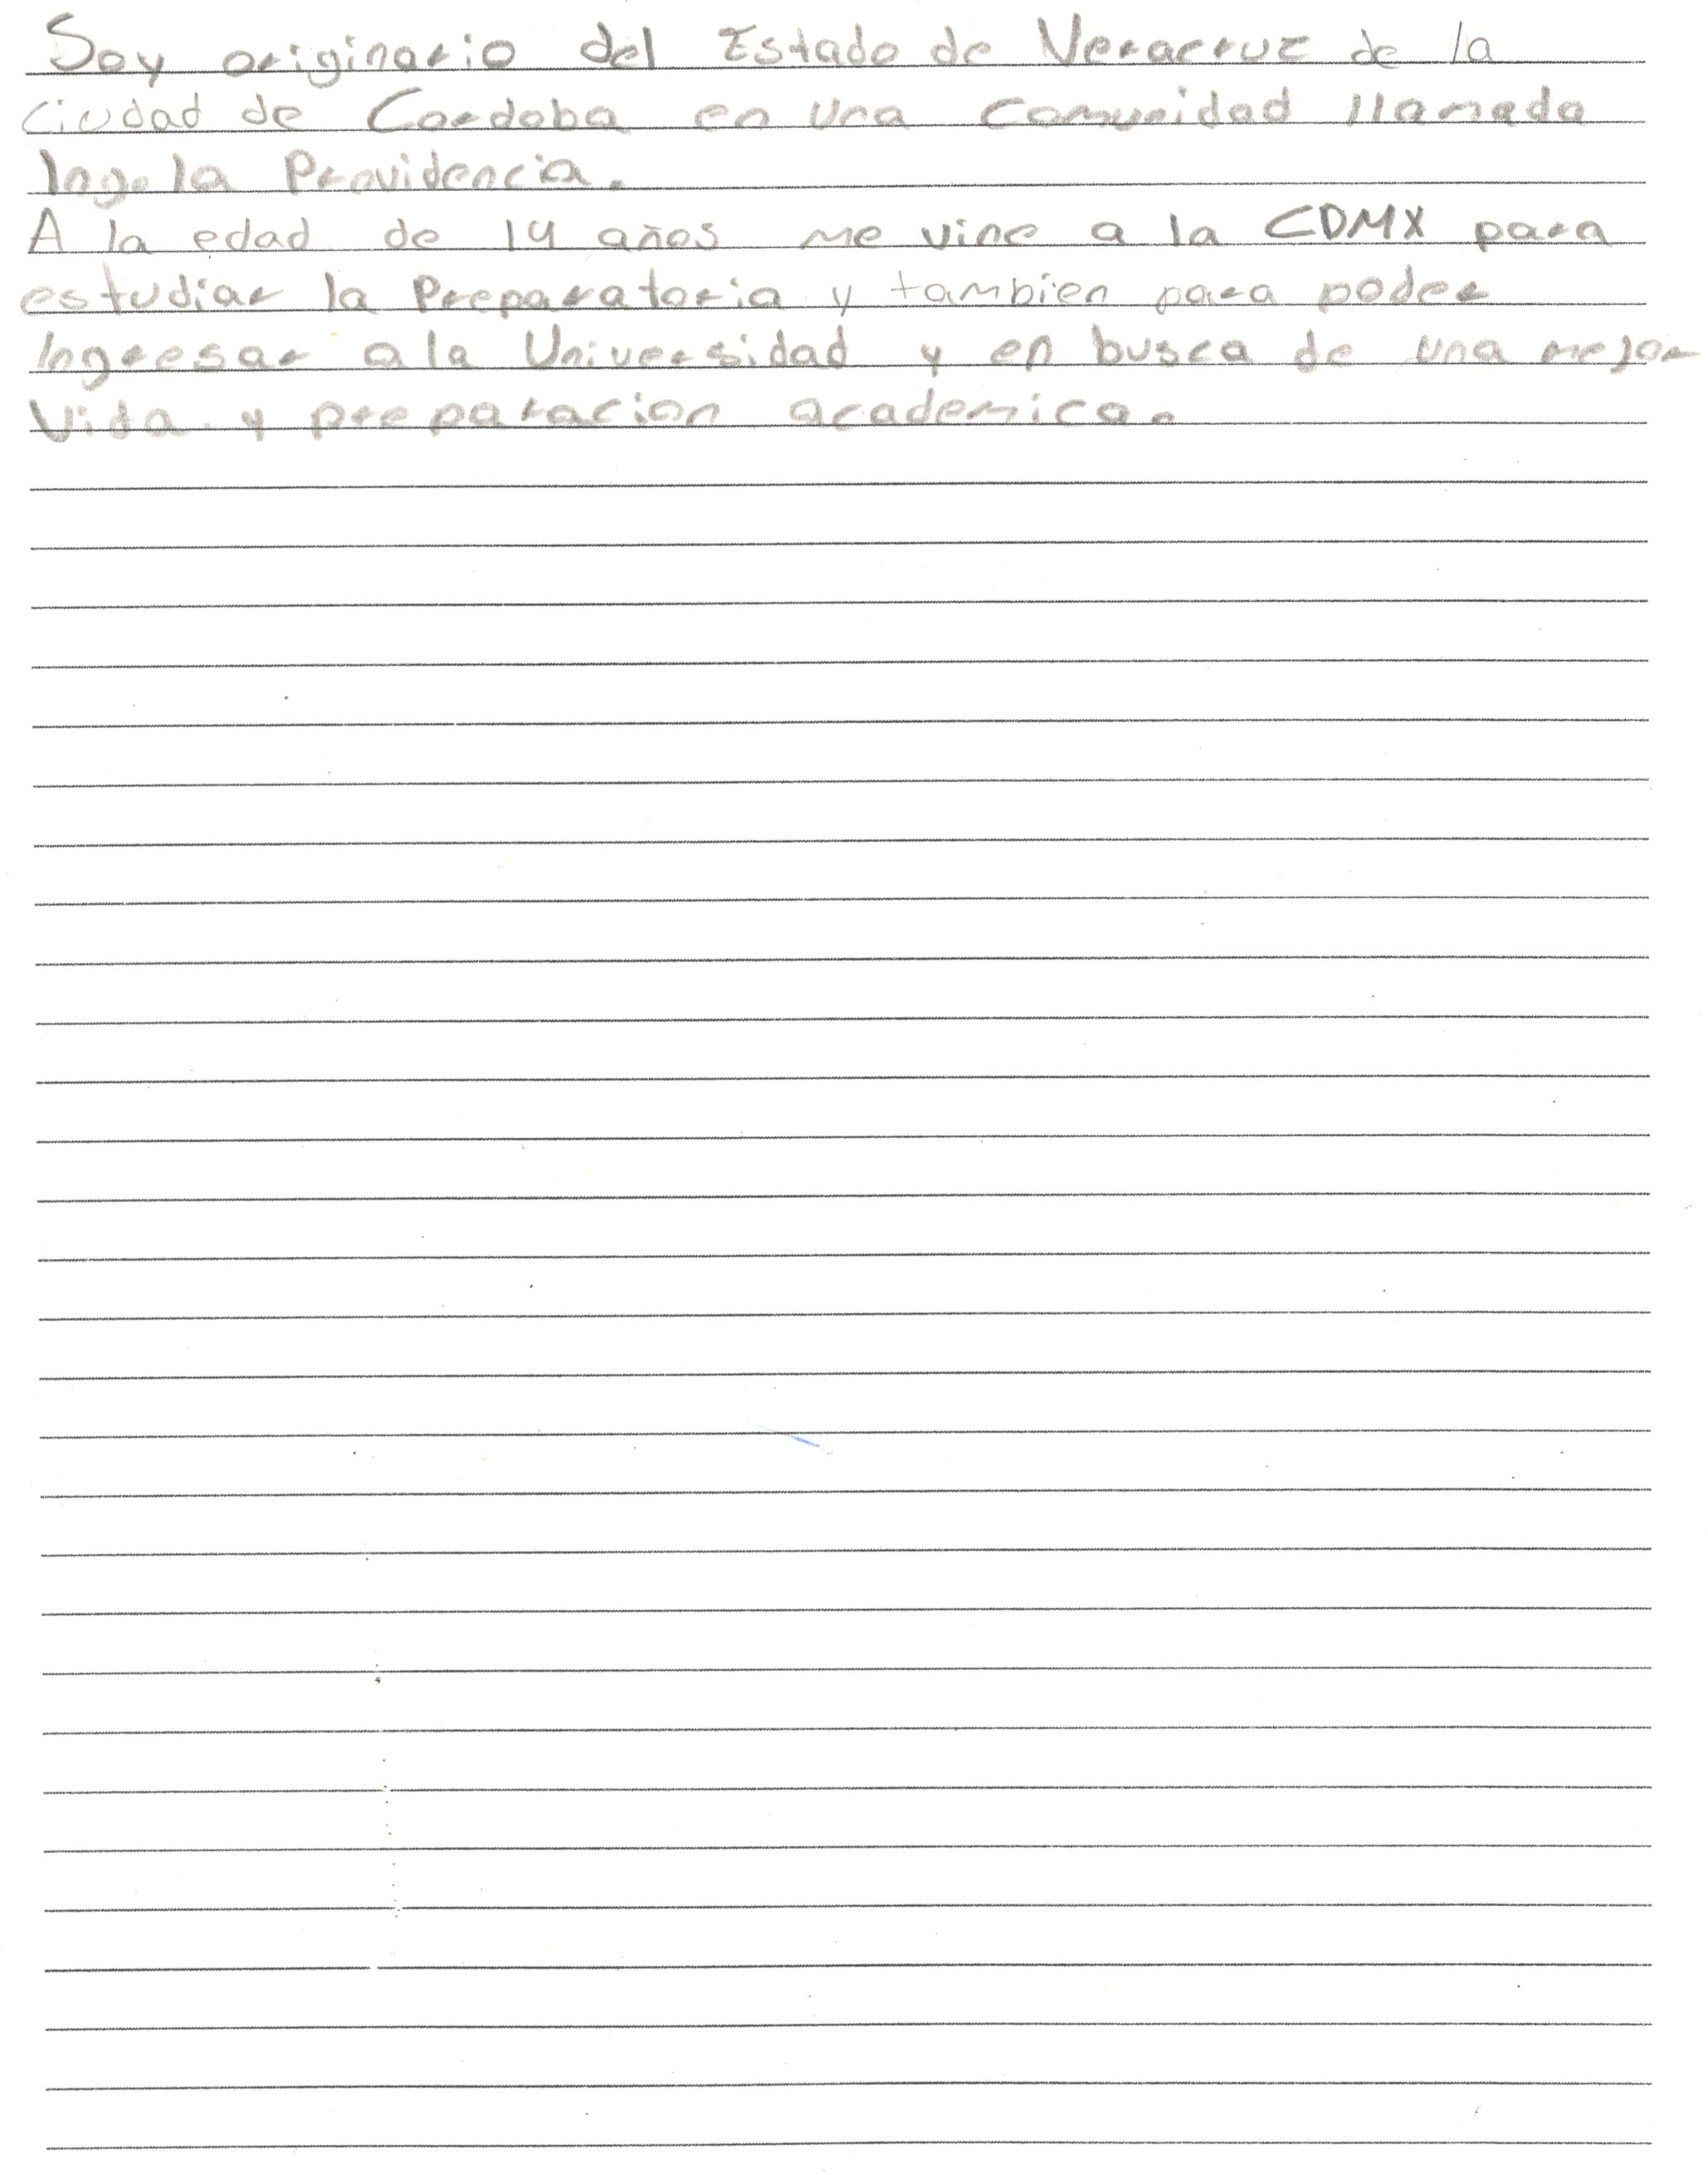 Soy originario del Estado de Veracruz de la
Ciudad de Cordoba en una comunidad llamada
Ing. la Providencia.
A la edad de 14 años me vine a la CDMX para
estudiar la Preparatoria y tambien para poder
Ingresar a la Universidad y en busca de una mejor
Vida y preparacion academica.